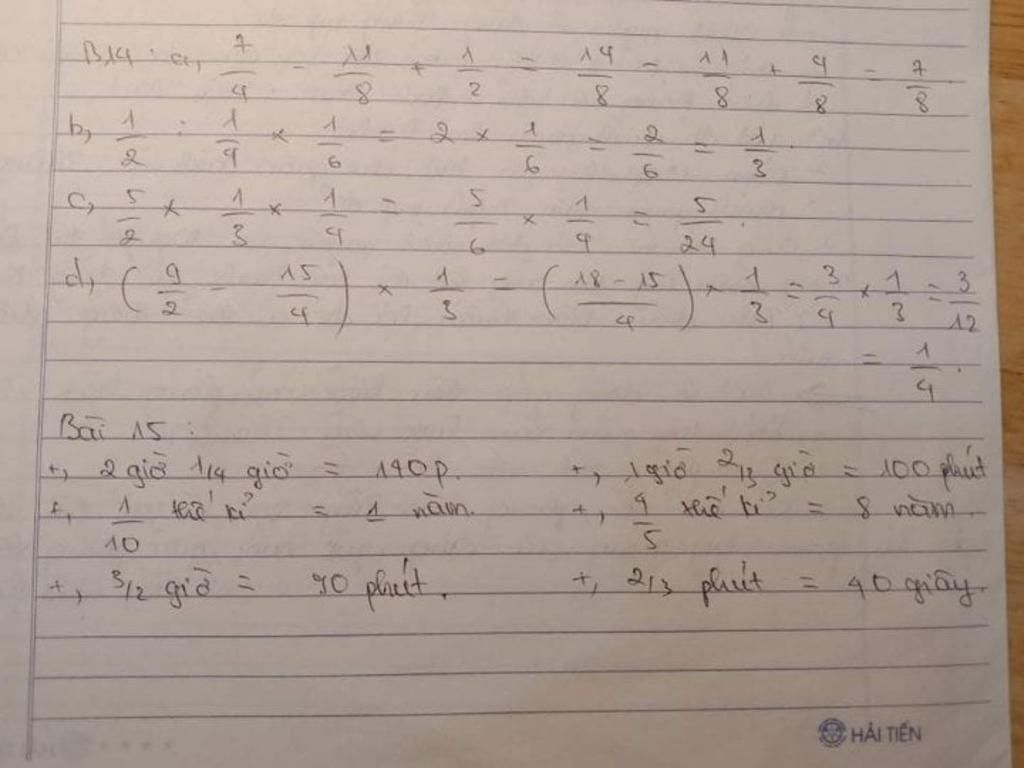 B14 : a, 7/4 - 11/8 + 1/2 = 14/8 - 11/8 + 4/8 = 7/8.
b, 1/2 : 1/4 × 1/6 = 2 × 1/6 = 2/6 = 1/3.
c, 5/2 × 1/3 × 1/4 = 5/6 × 1/4 = 5/24.
d, (9/2 - 15/4) × 1/3 = (18 - 15/4) × 1/3 = 3/4 × 1/3 = 3/12
= 1/4.
Bài 15 :
+, 2 giờ 1/4 giờ = 140p. +, 1 giờ 2/3 giờ = 100 phút
+, 1/10 thế kỉ = 1 năm. +, 4/5 thế kỉ = 8 năm.
+, 3/2 giờ = 90 phút. +, 2/3 phút = 40 giây.
HẢI TIẾN